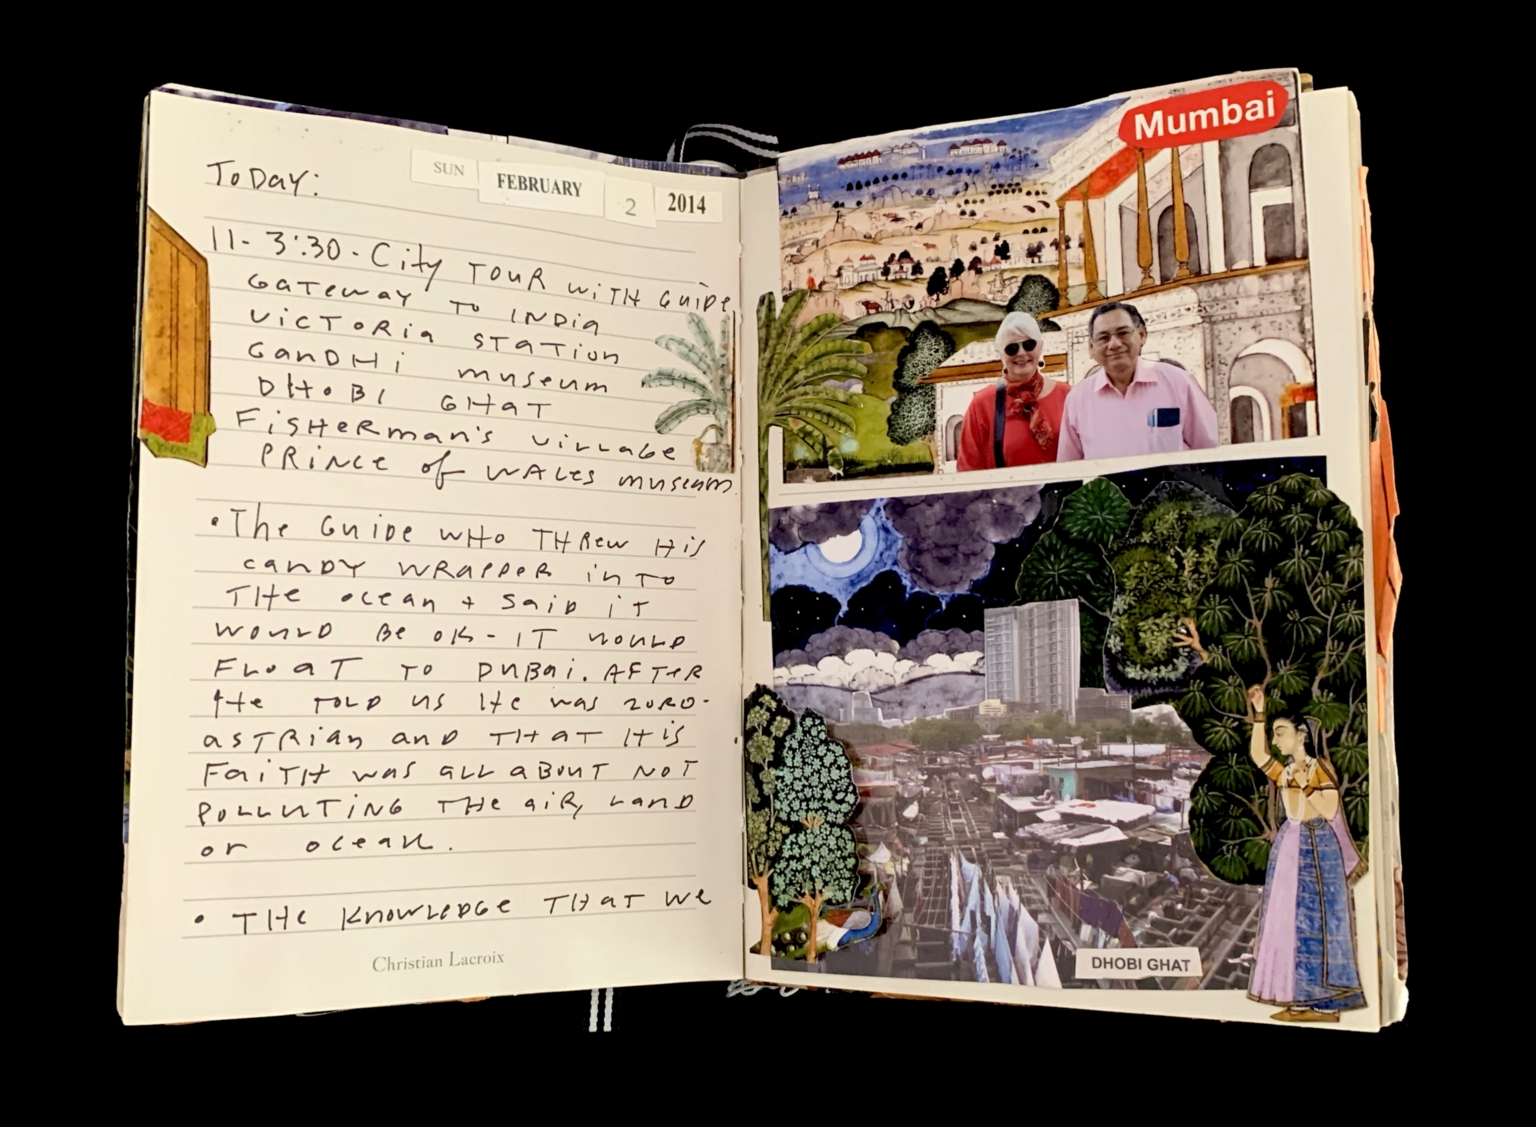 TODAY:
SUN FEBRUARY 2 2014
11- 3:30 - City TOUR WITH GUIDE
GATEWAY TO INDIA
VICTORIA STATION
GANDHI MUSEUM
DHOBI GHAT
FISHERMAN'S VILLAGE
PRINCE of WALES MUSEUM
• The GUIDE WHO THREW HIS
CANDY WRAPPER INTO
THE OCEAN + SAID IT
WOULD BE OK - IT WOULD
FLOAT TO DUBAI. AFTER
He TOLD US He WAS ZORO-
ASTRIAN AND THAT HIS
FAITH WAS ALL ABOUT NOT
POLLUTING THE AIR, LAND
OR OCEAN.
• THE KNOWLEDGE THAT WE
Christian Lacroix
Mumbai
DHOBI GHAT